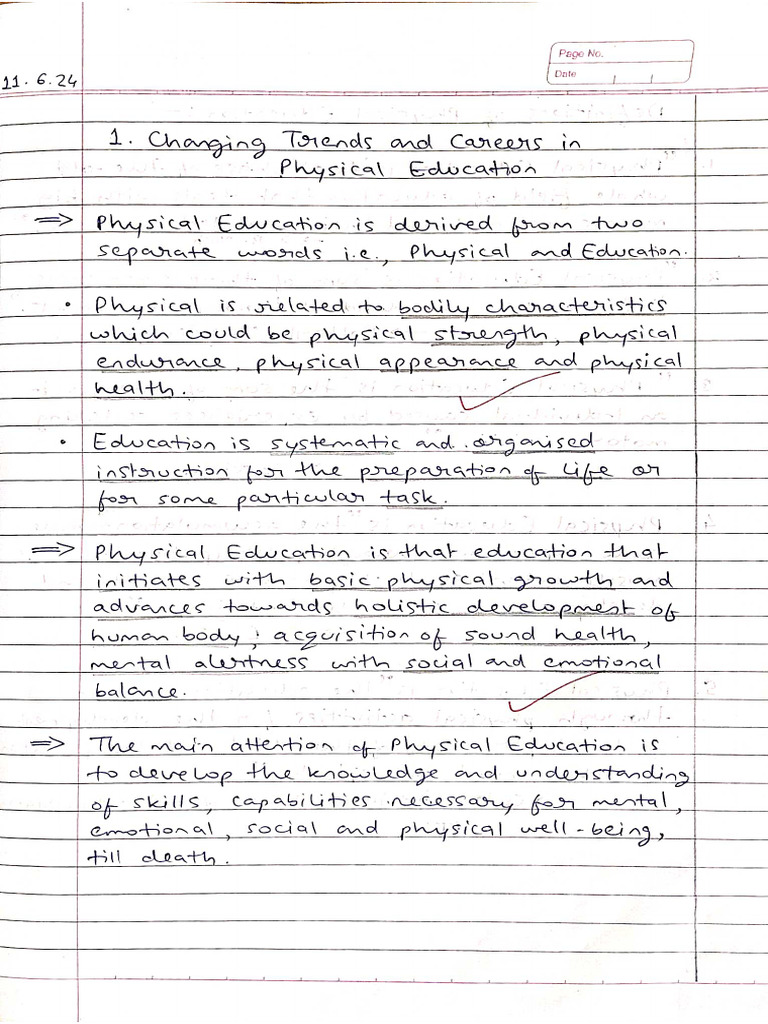 Page No.
Date
11.6.24
1. Changing Trends and Careers in
Physical Education
⇒ Physical Education is derived from two
separate words i.e., Physical and Education.
• Physical is related to bodily characteristics
which could be physical strength, physical
endurance, physical appearance and physical
health.
• Education is systematic and organised
instruction for the preparation of life or
for some particular task.
⇒ Physical Education is that education that
initiates with basic physical growth and
advances towards holistic development of
human body; acquisition of sound health,
mental alertness with social and emotional
balance.
⇒ The main attention of Physical Education is
to develop the knowledge and understanding
of skills, capabilities necessary for mental,
emotional, social and physical well-being,
till death.